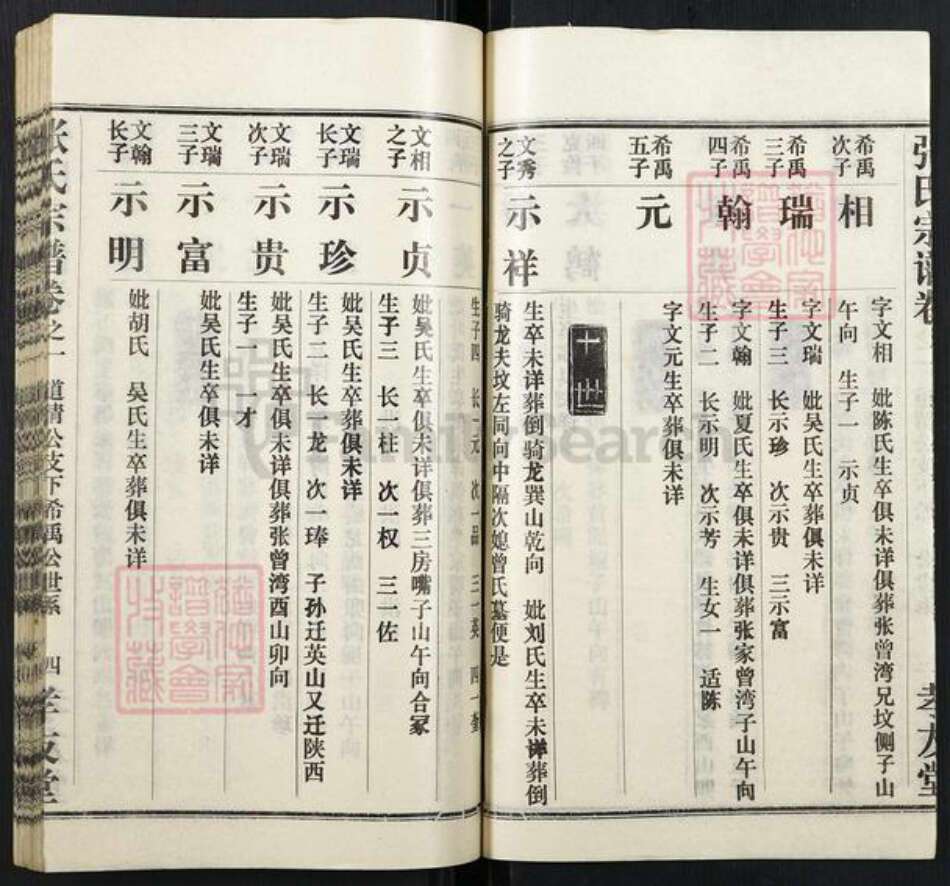 张氏宗谱卷
孝友堂
希禹
次子
相
字文相 妣陈氏生卒俱未详俱葬张曾湾兄坟侧子山
午向 生子一 示贞
希禹
三子
瑞
字文瑞 妣吴氏生卒葬俱未详
生子三 长示珍 次示贵 三示富
希禹
四子
翰
字文翰 妣夏氏生卒俱未详俱葬张家曾湾子山午向
生子二 长示明 次示芳 生女一 适陈
希禹
五子
元
字文元生卒葬俱未详
十世
文秀
之子
示祥
生卒未详葬倒骑龙巽山乾向 妣刘氏生卒未详葬倒
骑龙夫坟左同向中隔次媳曾氏墓便是
生子四 长一元 次一品 三一英 四一奎
文相
之子
示贞
妣吴氏生卒俱未详俱葬三房嘴子山午向合冢
生子三 长一柱 次一权 三一佐
文瑞
长子
示珍
妣吴氏生卒葬俱未详
生子二 长一龙 次一琫 子孙迁英山又迁陕西
文瑞
次子
示贵
妣吴氏生卒俱未详俱葬张曾湾酉山卯向
生子一 一才
文瑞
三子
示富
妣吴氏生卒俱未详
文翰
长子
示明
妣胡氏 吴氏生卒葬俱未详
张氏宗谱卷之一 道清公支下希禹公世系 四 孝友堂
FamilySearch